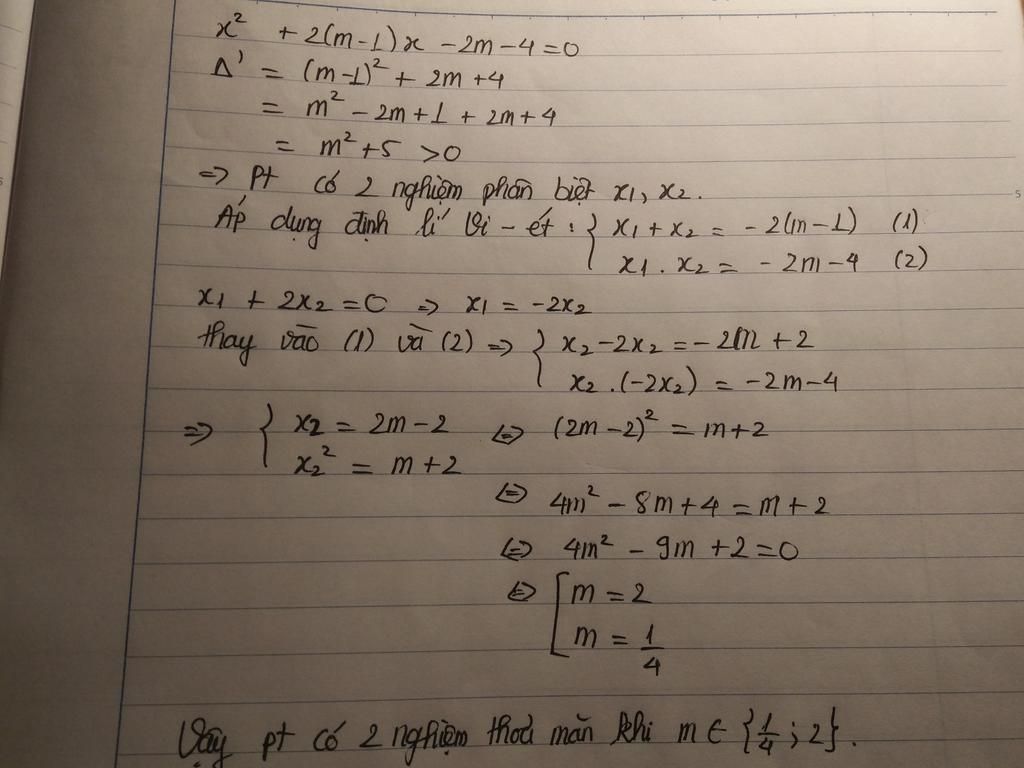 x² + 2(m-1)x - 2m - 4 = 0
Δ' = (m-1)² + 2m + 4
= m² - 2m + 1 + 2m + 4
= m² + 5 > 0
=> Pt có 2 nghiệm phân biệt x₁, x₂.
Áp dụng định lí Vi - ét : { x₁ + x₂ = - 2(m-1) (1)
x₁ . x₂ = - 2m - 4 (2)
x₁ + 2x₂ = 0 => x₁ = -2x₂
thay vào (1) và (2) => { x₂ - 2x₂ = - 2m + 2
x₂ . (-2x₂) = -2m - 4
=> { x₂ = 2m - 2 <=> (2m - 2)² = m + 2
x₂² = m + 2
<=> 4m² - 8m + 4 = m + 2
<=> 4m² - 9m + 2 = 0
<=> [ m = 2
m = 1/4
Vậy pt có 2 nghiệm thoả mãn khi m ∈ {1/4 ; 2}.